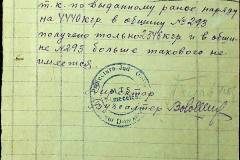 т.к. по выданному ранее наряду
на 4440 кгр. в общину № 293
получено только 2346 кгр и в общи-
не № 293 больше такового не
имеется.
Директор
Бухгалтер